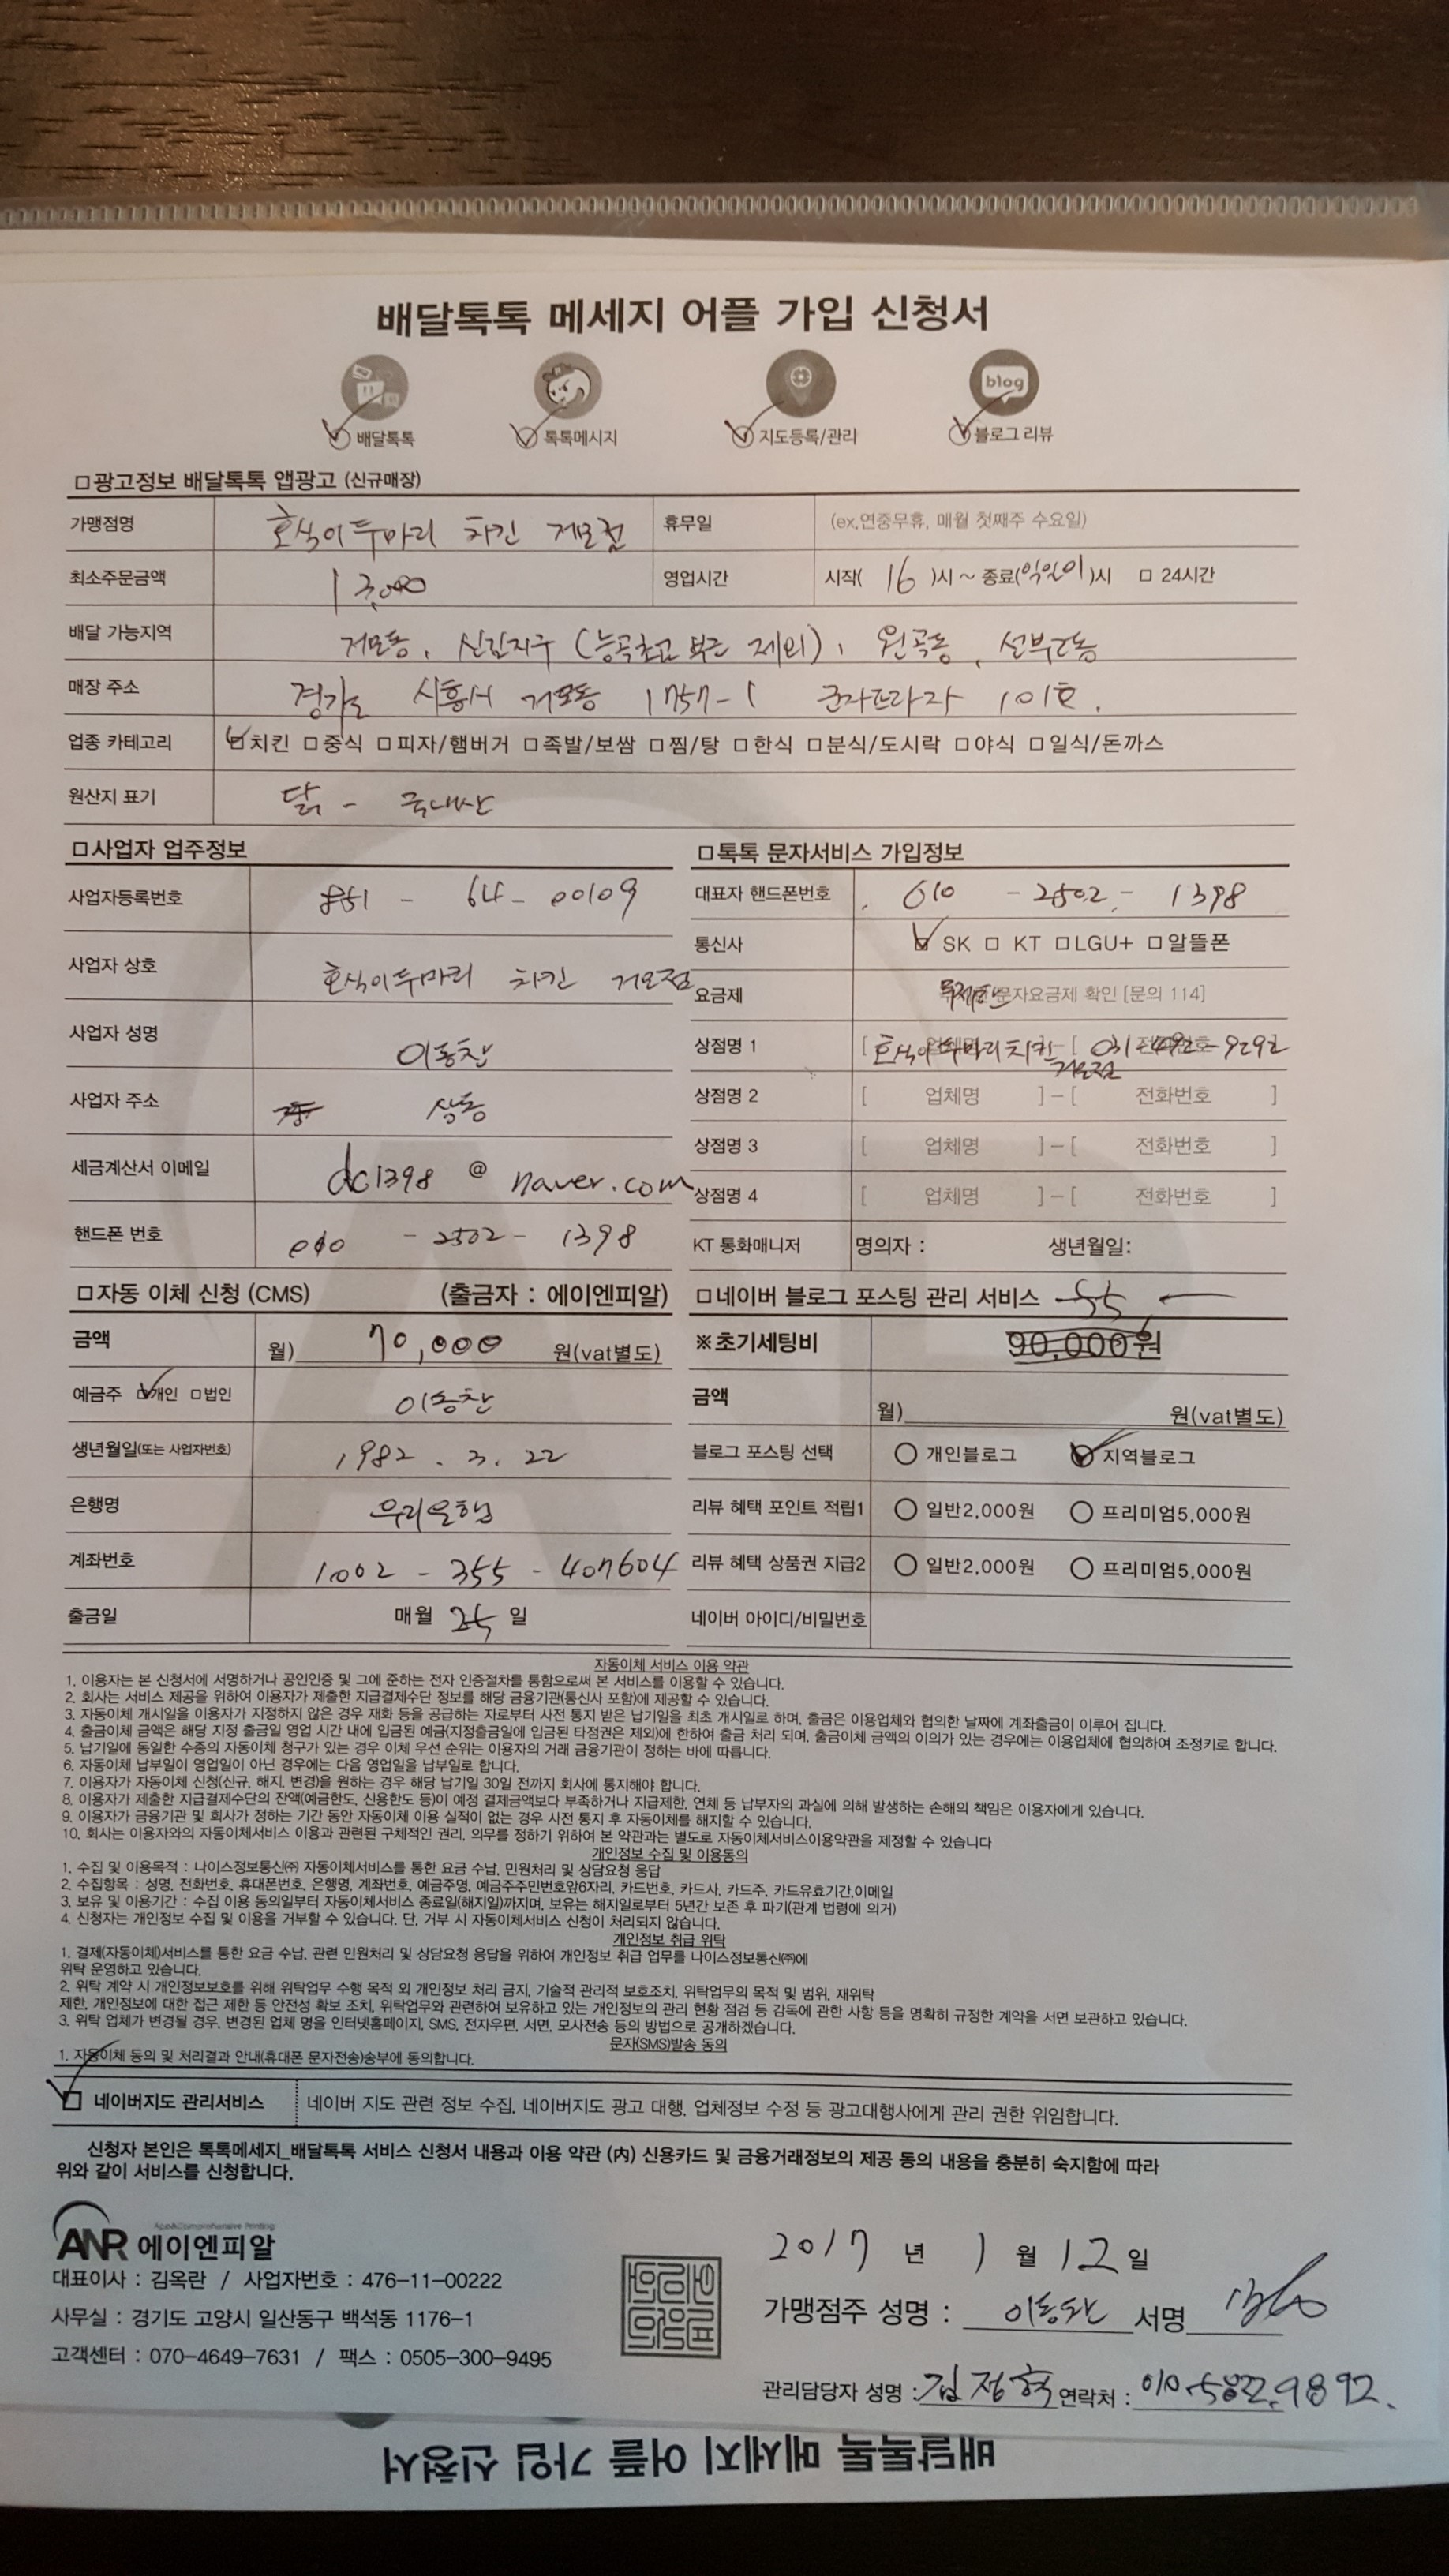 배달톡톡 메세지 어플 가입 신청서
blog
배달톡톡 톡톡메시지 지도등록/관리 블로그 리뷰
□광고정보 배달톡톡 앱광고 (신규매장)
가맹점명 호식이두마리 치킨 거모점 휴무일 (ex.연중무휴, 매월 첫째주 수요일)
최소주문금액 13,000 영업시간 시작( 16 )시 ~ 종료( )시 □ 24시간
배달 가능지역 거모동, 신길지구 (능곡초교 부근 제외), 원곡동, 선부2동
매장 주소 경기도 시흥시 거모동 1757-1 군자프라자 101호.
업종 카테고리 □치킨 □중식 □피자/햄버거 □족발/보쌈 □찜/탕 □한식 □분식/도시락 □야식 □일식/돈까스
원산지 표기 닭 - 국내산
□사업자 업주정보
사업자등록번호 - 64 - 00109
사업자 상호 호식이두마리 치킨 거모점
사업자 성명 이동찬
사업자 주소 상동
세금계산서 이메일 dc1398 @ naver.com
핸드폰 번호 010 - 2502 - 1398
□톡톡 문자서비스 가입정보
대표자 핸드폰번호 010 - 2502 - 1398
통신사 □ SK □ KT □LGU+ □알뜰폰
요금제 무제한 문자요금제 확인 [문의 114]
상점명 1 [ 호식이두마리치킨 거모점 ]-[ 031-492-9292
상점명 2 [ 업체명 ]-[ 전화번호 ]
상점명 3 [ 업체명 ]-[ 전화번호 ]
상점명 4 [ 업체명 ]-[ 전화번호 ]
KT 통화매니저 명의자 : 생년월일:
□자동 이체 신청 (CMS) (출금자 : 에이엔피알)
금액 월) 70,000 원(vat별도)
예금주 □개인 □법인 이동찬
생년월일(또는 사업자번호) 1982. 3. 22
은행명 우리은행
계좌번호 1002 - 355 - 407604
출금일 매월 25 일
□네이버 블로그 포스팅 관리 서비스
※초기세팅비 90,000원
금액 월) 원(vat별도)
블로그 포스팅 선택 ○ 개인블로그 ○ 지역블로그
리뷰 혜택 포인트 적립1 ○ 일반2,000원 ○ 프리미엄5,000원
리뷰 혜택 상품권 지급2 ○ 일반2,000원 ○ 프리미엄5,000원
네이버 아이디/비밀번호
자동이체 서비스 이용 약관
1. 이용자는 본 신청서에 서명하거나 공인인증 및 그에 준하는 전자 인증절차를 통함으로써 본 서비스를 이용할 수 있습니다.
2. 회사는 서비스 제공을 위하여 이용자가 제출한 지급결제수단 정보를 해당 금융기관(통신사 포함)에 제공할 수 있습니다.
3. 자동이체 개시일을 이용자가 지정하지 않은 경우 재화 등을 공급하는 자로부터 사전 통지 받은 납기일을 최초 개시일로 하며, 출금은 이용업체와 협의한 날짜에 계좌출금이 이루어 집니다.
4. 출금이체 금액은 해당 지정 출금일 영업 시간 내에 입금된 예금(지정출금일에 입금된 타점권은 제외)에 한하여 출금 처리 되며, 출금이체 금액의 이의가 있는 경우에는 이용업체에 협의하여 조정키로 합니다.
5. 납기일에 동일한 수종의 자동이체 청구가 있는 경우 이체 우선 순위는 이용자의 거래 금융기관이 정하는 바에 따릅니다.
6. 자동이체 납부일이 영업일이 아닌 경우에는 다음 영업일을 납부일로 합니다.
7. 이용자가 자동이체 신청(신규, 해지, 변경)을 원하는 경우 해당 납기일 30일 전까지 회사에 통지해야 합니다.
8. 이용자가 제출한 지급결제수단의 잔액(예금한도, 신용한도 등)이 예정 결제금액보다 부족하거나 지급제한, 연체 등 납부자의 과실에 의해 발생하는 손해의 책임은 이용자에게 있습니다.
9. 이용자가 금융기관 및 회사가 정하는 기간 동안 자동이체 이용 실적이 없는 경우 사전 통지 후 자동이체를 해지할 수 있습니다.
10. 회사는 이용자와의 자동이체서비스 이용과 관련된 구체적인 권리, 의무를 정하기 위하여 본 약관과는 별도로 자동이체서비스이용약관을 제정할 수 있습니다
개인정보 수집 및 이용동의
1. 수집 및 이용목적 : 나이스정보통신㈜ 자동이체서비스를 통한 요금 수납, 민원처리 및 상담요청 응답
2. 수집항목 : 성명, 전화번호, 휴대폰번호, 은행명, 계좌번호, 예금주명, 예금주주민번호앞6자리, 카드번호, 카드사, 카드주, 카드유효기간,이메일
3. 보유 및 이용기간 : 수집 이용 동의일부터 자동이체서비스 종료일(해지일)까지며, 보유는 해지일로부터 5년간 보존 후 파기(관계 법령에 의거)
4. 신청자는 개인정보 수집 및 이용을 거부할 수 있습니다. 단, 거부 시 자동이체서비스 신청이 처리되지 않습니다.
개인정보 취급 위탁
1. 결제(자동이체)서비스를 통한 요금 수납, 관련 민원처리 및 상담요청 응답을 위하여 개인정보 취급 업무를 나이스정보통신㈜에
위탁 운영하고 있습니다.
2. 위탁 계약 시 개인정보보호를 위해 위탁업무 수행 목적 외 개인정보 처리 금지, 기술적 관리적 보호조치, 위탁업무의 목적 및 범위, 재위탁
제한, 개인정보에 대한 접근 제한 등 안전성 확보 조치, 위탁업무와 관련하여 보유하고 있는 개인정보의 관리 현황 점검 등 감독에 관한 사항 등을 명확히 규정한 계약을 서면 보관하고 있습니다.
3. 위탁 업체가 변경될 경우, 변경된 업체 명을 인터넷홈페이지, SMS, 전자우편, 서면, 모사전송 등의 방법으로 공개하겠습니다.
문자(SMS)발송 동의
1. 자동이체 동의 및 처리결과 안내(휴대폰 문자전송)송부에 동의합니다.
□ 네이버지도 관리서비스 네이버 지도 관련 정보 수집, 네이버지도 광고 대행, 업체정보 수정 등 광고대행사에게 관리 권한 위임합니다.
신청자 본인은 톡톡메세지_배달톡톡 서비스 신청서 내용과 이용 약관 (內) 신용카드 및 금융거래정보의 제공 동의 내용을 충분히 숙지함에 따라
위와 같이 서비스를 신청합니다.
ANR 에이엔피알
대표이사 : 김옥란 / 사업자번호 : 476-11-00222
사무실 : 경기도 고양시 일산동구 백석동 1176-1
고객센터 : 070-4649-7631 / 팩스 : 0505-300-9495
2017 년 1 월 12 일
가맹점주 성명 : 이동찬 서명
관리담당자 성명 : 김정혁 연락처 :
배달톡톡 메세지 어플 가입 신청서